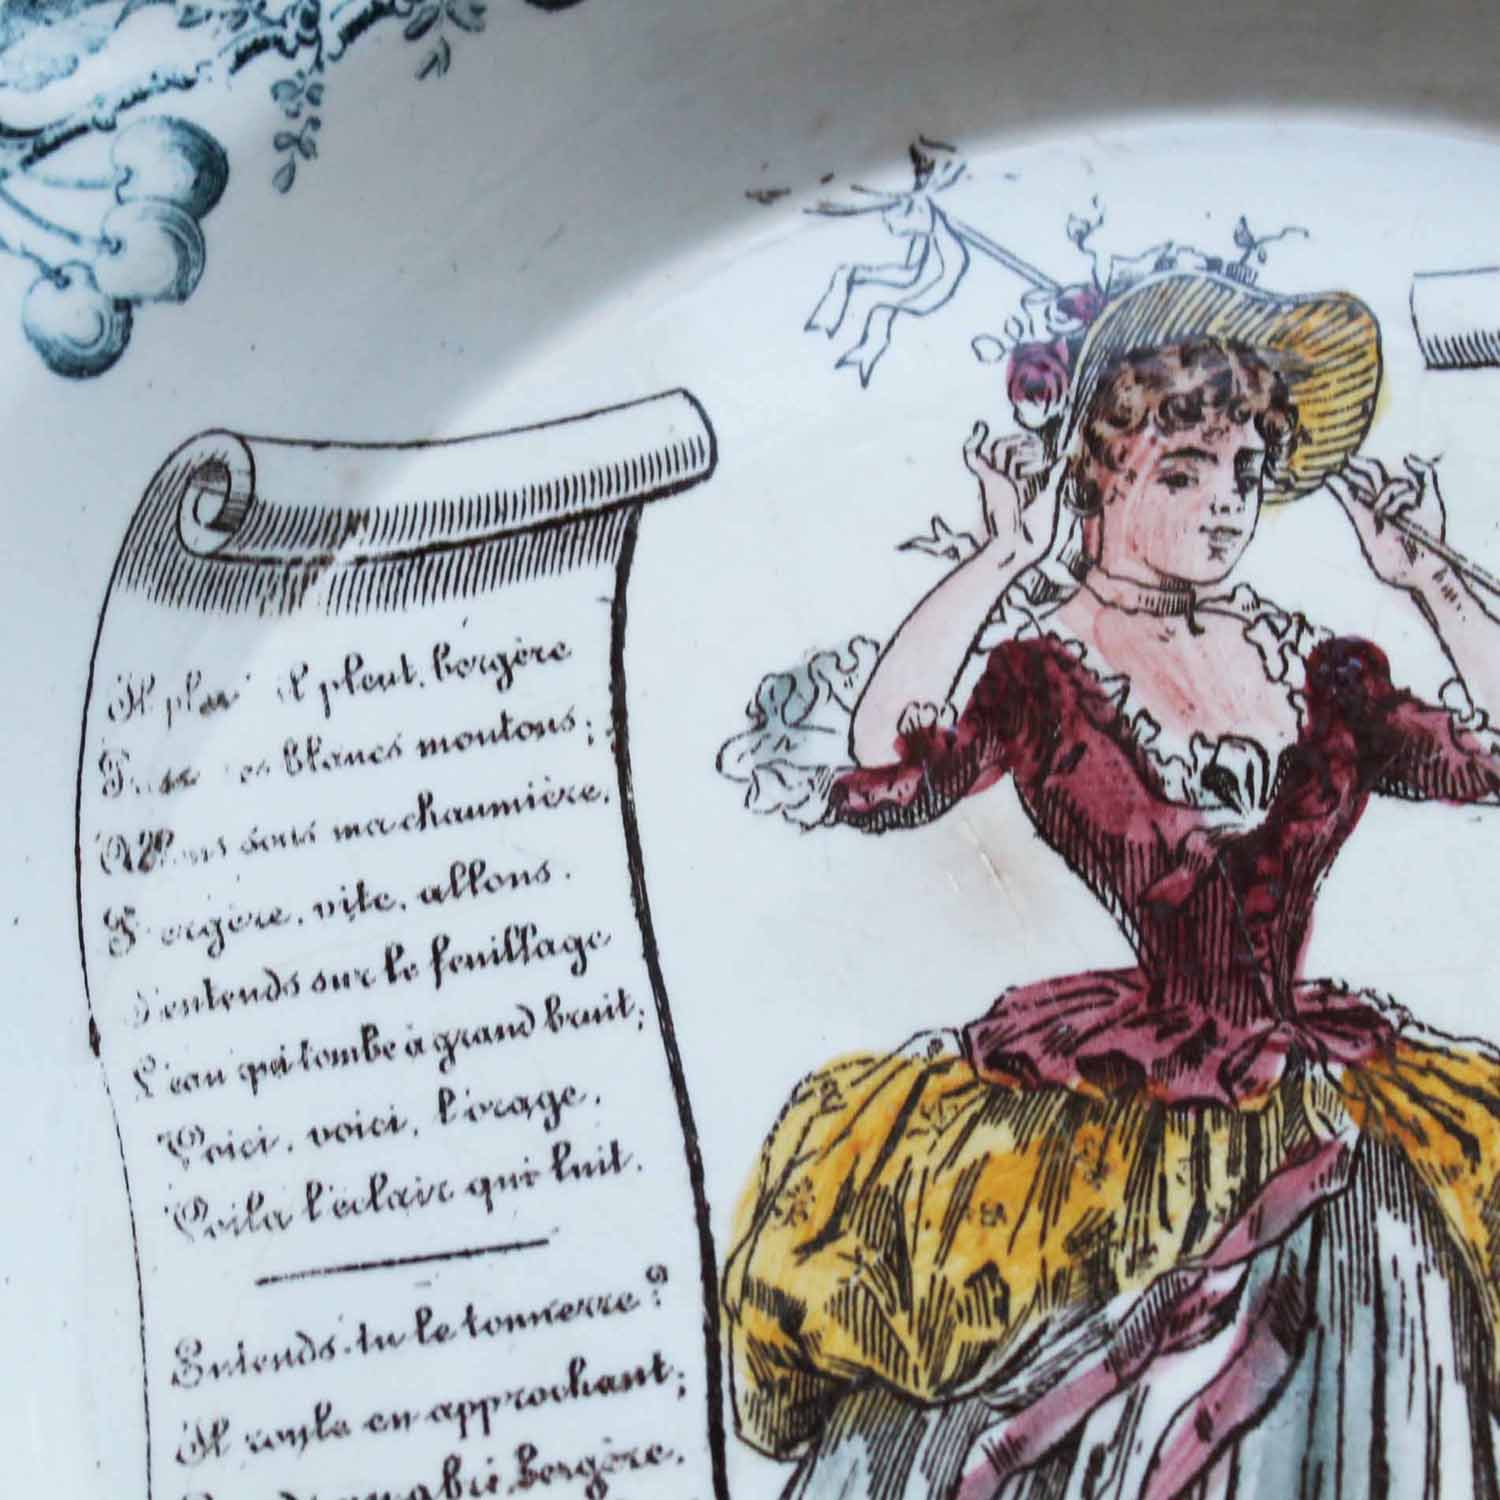 Il pleut il pleut, bergère
Presse tes blancs moutons;
Allons sous ma chaumière,
Bergère, vite, allons.
J'entends sur le feuillage
L'eau qui tombe à grand bruit;
Voici, voici, l'orage,
Voila l'éclair qui luit.
Entends-tu le tonnerre?
Il roule en approchant;
bergère,